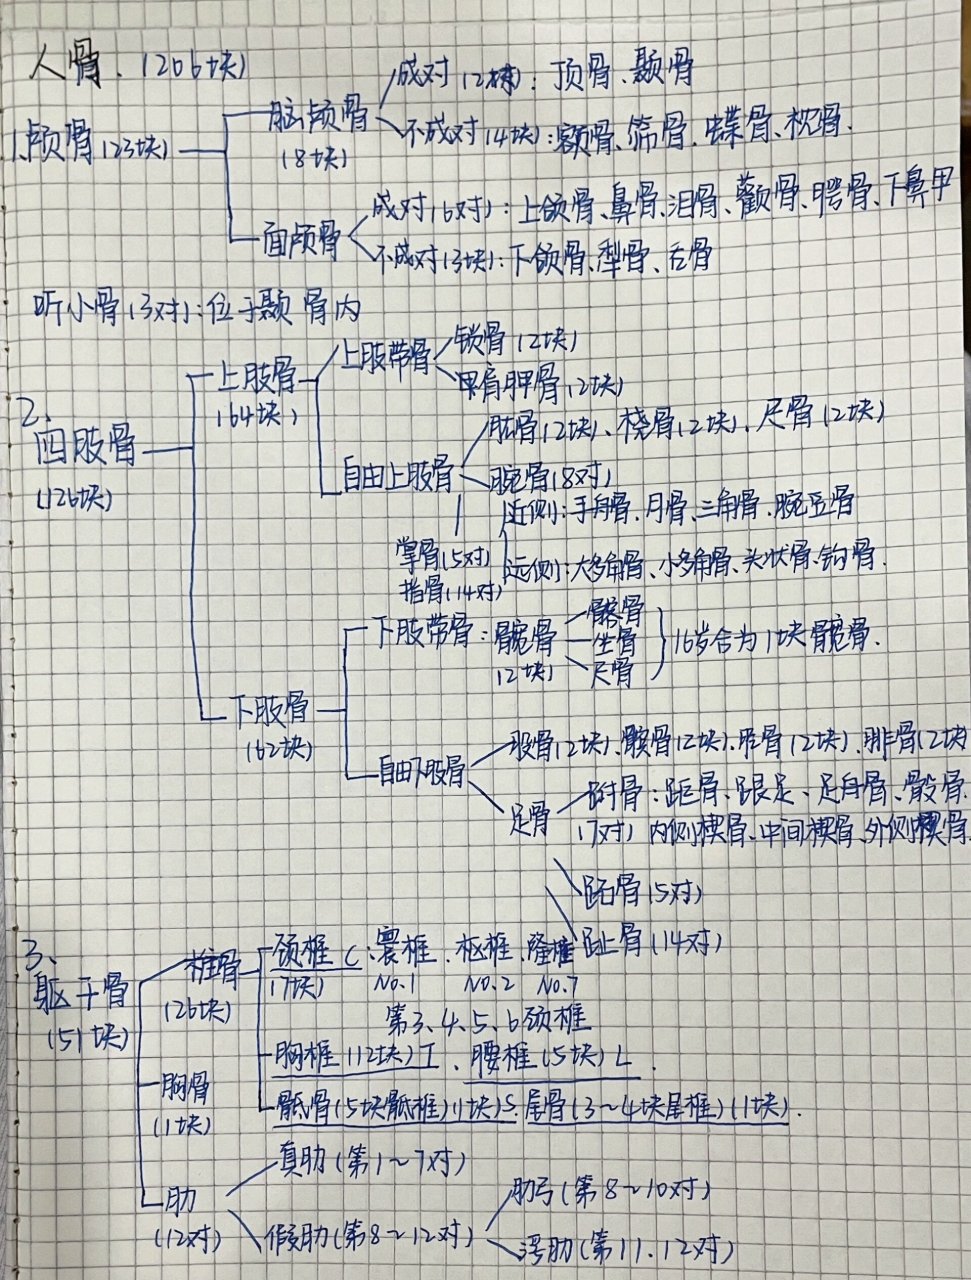 人骨.(206块)
1.颅骨(23块)
脑颅骨(8块)
成对(2块):顶骨、颞骨
不成对(4块):额骨、筛骨、蝶骨、枕骨.
面颅骨
成对(6对):上颌骨、鼻骨、泪骨、颧骨、腭骨、下鼻甲
不成对(3块):下颌骨、犁骨、舌骨
听小骨(3对):位于颞骨内
2、四肢骨(126块)
上肢骨(64块)
上肢带骨
锁骨(2块)
肩胛骨(2块)
自由上肢骨
肱骨(2块)、桡骨(2块)、尺骨(2块)
腕骨(8对)
近侧:手舟骨、月骨、三角骨、腕豆骨
远侧:大多角骨、小多角骨、头状骨、钩骨.
掌骨(5对)
指骨(14对)
下肢骨(62块)
下肢带骨:髋骨(2块)
髂骨
坐骨
尺骨
16岁合为1块髋骨.
自由下肢骨
股骨(2块)、髌骨(2块)、胫骨(2块)、腓骨(2块)
足骨
跗骨:距骨、跟足、足舟骨、骰骨.
(7对)内侧楔骨、中间楔骨、外侧楔骨.
跖骨(5对)
趾骨(14对)
3、躯干骨(51块)
椎骨(26块)
颈椎C:寰椎、枢椎、隆椎
(7块) NO.1 NO.2 NO.7
第3、4、5、6颈椎
胸椎(12块)T、腰椎(5块)L.
骶骨(5块骶椎)(1块)S.尾骨(3~4块尾椎)(1块).
胸骨(1块)
肋(12对)
真肋(第1~7对)
假肋(第8~12对)
肋弓(第8~10对)
浮肋(第11.12对)